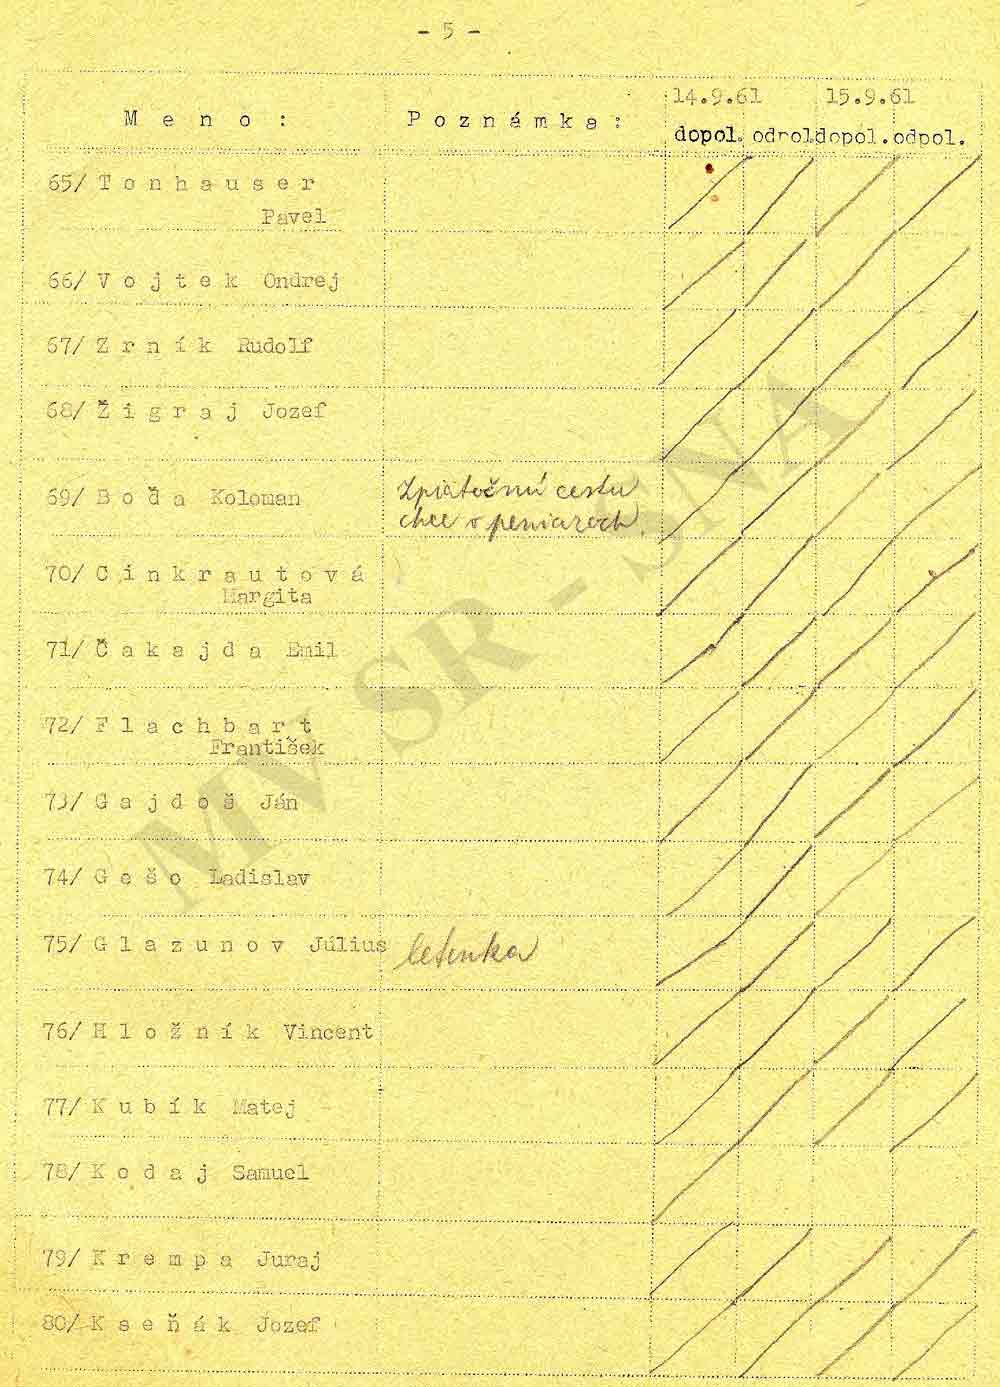 - 5 -
14.9.61 15.9.61
M e n o : P o z n á m k a :
dopol. odpol.dopol.odpol.
65/ T o n h a u s e r
Pavel
66/ V o j t e k Ondrej
67/ Z r n í k Rudolf
68/ Ž i g r a j Jozef
69/ B o ď a Koloman Zpiatočnú cestu
chce v peniazoch
70/ C i n k r a u t o v á
Margita
71/ Č a k a j d a Emil
72/ F l a c h b a r t
František
73/ G a j d o š Ján
74/ G e š o Ladislav
75/ G l a z u n o v Július letenka
76/ H l o ž n í k Vincent
77/ K u b í k Matej
78/ K o d a j Samuel
79/ K r e m p a Juraj
80/ K s e ň á k Jozef
MV SR - SNA